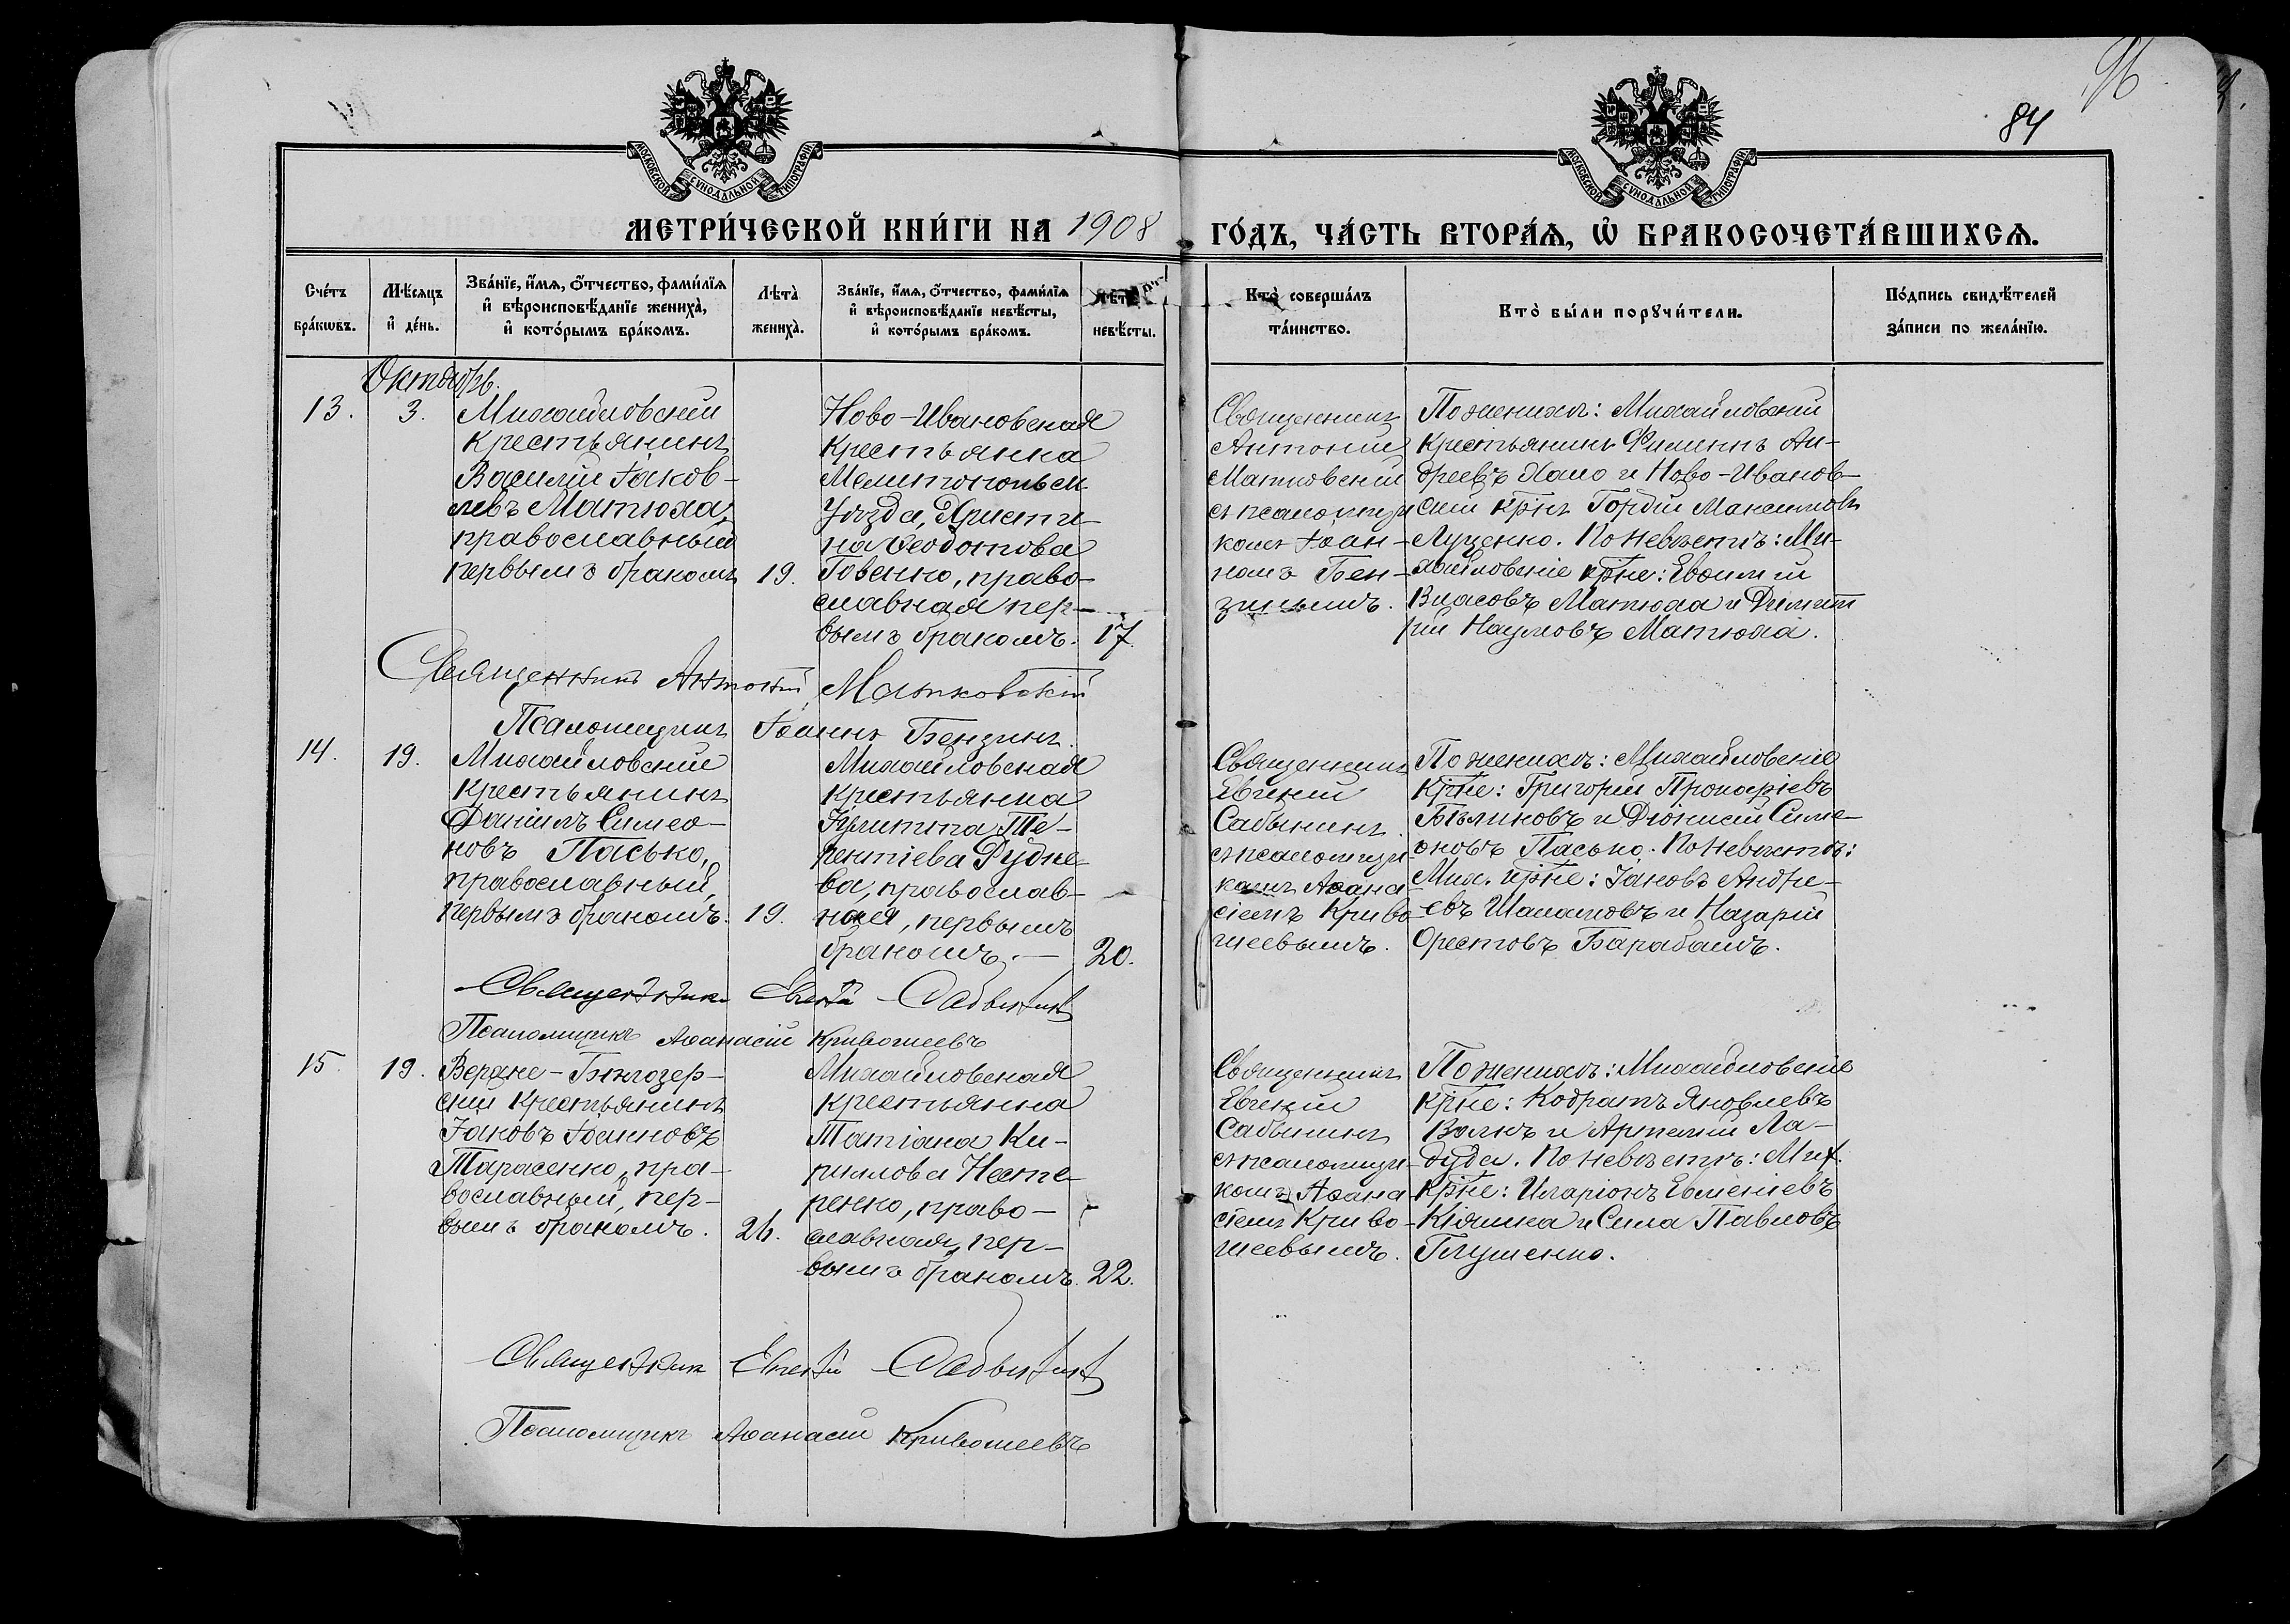 96
84
МОСКОВСКОЙ СѴНОДАЛЬНОЙ ТИПОГРАФІИ
МОСКОВСКОЙ СѴНОДАЛЬНОЙ ТИПОГРАФІИ
МЕТРИ́ЧЕСКОЙ КНИ́ГИ НА 1908 ГО́ДЪ, ЧА́СТЬ ВТОРА́Ѧ, Ѡ҆ БРАКОСОЧЕТА́ВШИХСѦ.
Сче́тъ
бра́кωвъ.
Мѣ́сяцъ
и҆ де́нь.
Зва́нїе, и҆́мѧ, ѻ҆́тчество, фами́лїѧ
и҆ вѣроисповѣ́данїе жениха̀,
и҆ кото́рымъ бра́комъ.
Лѣта̀
жениха̀.
Зва́нїе, и҆́мѧ, ѻ҆́тчество, фами́лїѧ
и҆ вѣроисповѣ́данїе невѣ́сты,
и҆ кото́рымъ бра́комъ.
Лѣта̀
невѣ́сты.
Кто̀ соверша́лъ
та́инство.
Кто̀ бы́ли порꙋчи́тели.
По́дпись свидѣ́телей
за́писи по жела́нїю.
Октябрь.
13.
3.
Михайловскій
крестьянинъ
Василій Іаков-
левъ Матюха,
православный
первымъ бракомъ
19.
Ново-Ивановская
крестьянка
Мелитопольск.
уѣзда, Христи-
на Ѳеодотова
Говенко, право-
славная пер-
вымъ бракомъ.
17.
Священникъ
Антоній
Матковскій
съ псаломщи
комъ Іоан-
номъ Бен-
зинымъ.
По женихѣ: Михайловскій
крестьянинъ Филиппъ Ан-
дреевъ Хало и Ново-Иванов-
скій крнъ Гордій Максимовъ
Луценко. По невѣстѣ: Ми-
хайловскіе крне: Евѳимій
Власовъ Матюха и Димит
рій Наумовъ Матюха.
Священникъ Антоній Матковскій
Псаломщикъ Іоаннъ Бензинъ.
14.
19.
Михайловскій
крестьянинъ
Даніилъ Симео-
новъ Пасько,
православный,
первымъ бракомъ.
19.
Михайловская
крестьянка
Іулитта Те-
рентіева Рудне-
ва, православ-
ная, первымъ
бракомъ.
20.
Священникъ
Евгеній
Сабынинъ
съ псаломщи-
комъ Аѳана-
сіемъ Криво-
шеевымъ.
По женихѣ: Михайловскіе
крне: Григорій Прокофіевъ
Бѣликовъ и Діонисій Симе-
оновъ Пасько. По невѣстѣ:
Мих. крне: Іаковъ Андре-
евъ Шаламовъ и Назарій
Орестовъ Барабашъ.
Священникъ Евгеній Сабынинъ
Псаломщикъ Аѳанасій Кривошеевъ
15.
19.
Верхне-Бѣлозер-
скій крестьянинъ
Іаковъ Іоанновъ
Тарасенко, пра-
вославный, пер-
вымъ бракомъ.
26.
Михайловская
крестьянка
Татіана Ки-
риллова Несте-
ренко, право-
славная, пер-
вымъ бракомъ.
22.
Священникъ
Евгеній
Сабынинъ
съ псаломщи-
комъ Аѳана-
сіемъ Криво-
шеевымъ.
По женихѣ: Михайловскіе
крне: Кодратъ Яковлевъ
Волкъ и Артемій Ла-
дуда. По невѣстѣ: Мих.
крне: Иларіонъ Евменіевъ
Кіяшка и Сила Павловъ
Глушенко.
Священникъ Евгеній Сабынинъ
Псаломщикъ Аѳанасій Кривошеевъ